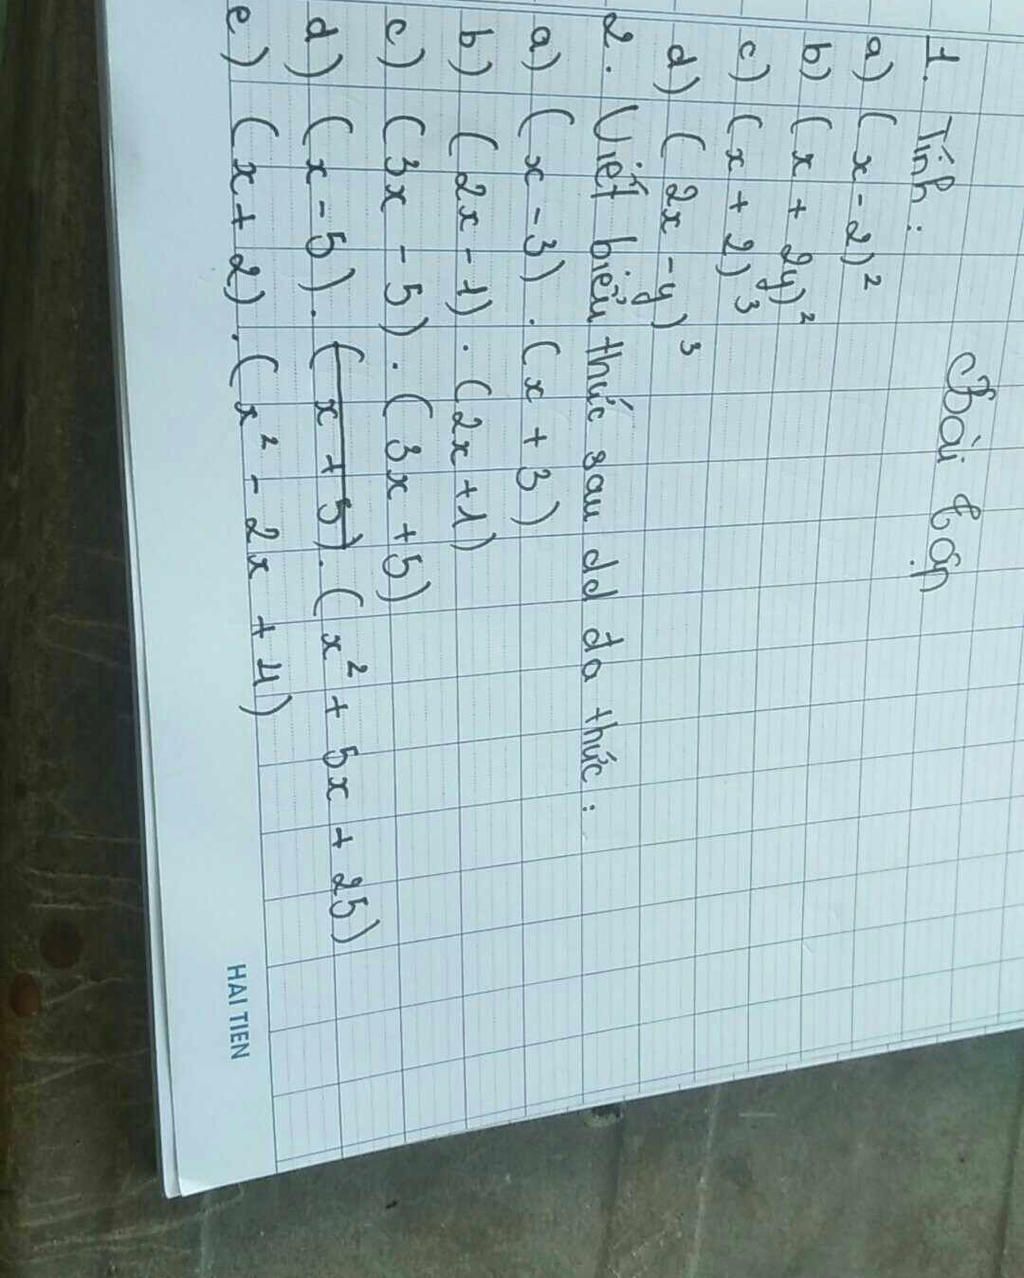 Bài tập
1. Tính:
a) (x - 2)²
b) (x + 2y)²
c) (x + 2)³
d) (2x - y)³
2. Viết biểu thức sau dd đa thức:
a) (x - 3) . (x + 3)
b) (2x - 1) . (2x + 1)
c) (3x - 5) . (3x + 5)
d) (x - 5) . (x + 5) . (x² + 5x + 25)
e) (x + 2) . (x² - 2x + 4)
HAI TIEN